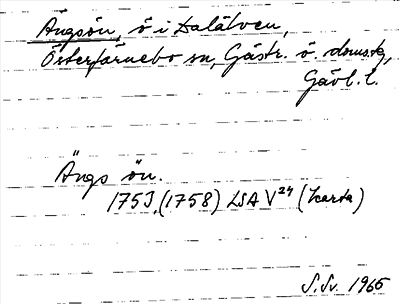 Ängsön, ö i Dalälven,
Österfärnebo sn, Gästr. ö. doms.tg,
Gävl. l.
Ängs ön.
1753, (1758) LSA V 24 (karta)
S. Sv. 1965